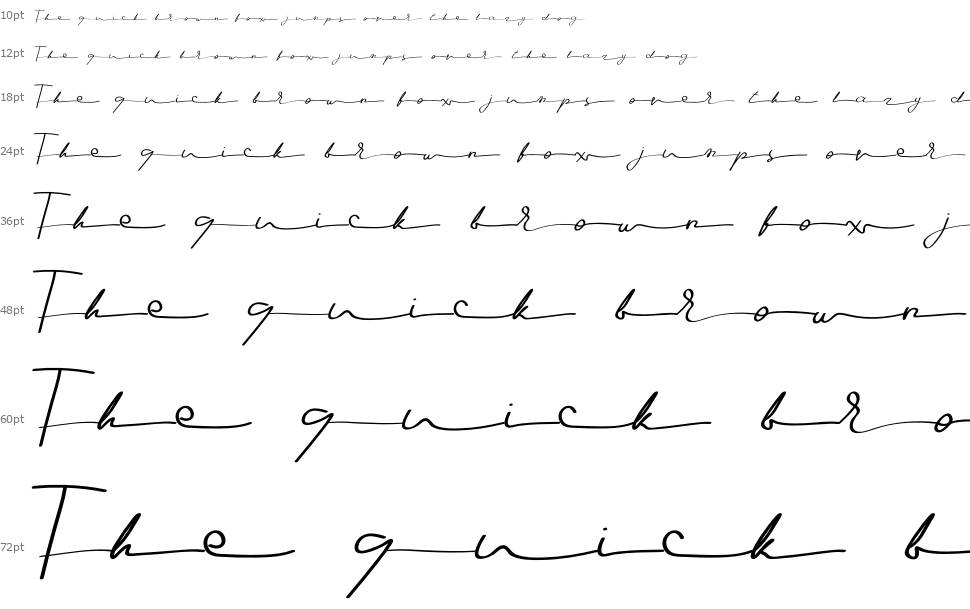 10pt The quick brown fox jumps over the lazy dog
12pt The quick brown fox jumps over the lazy dog
18pt The quick brown fox jumps over the lazy d
24pt The quick brown fox jumps over
36pt The quick brown fox j
48pt The quick brown
60pt The quick bro
72pt The quick b